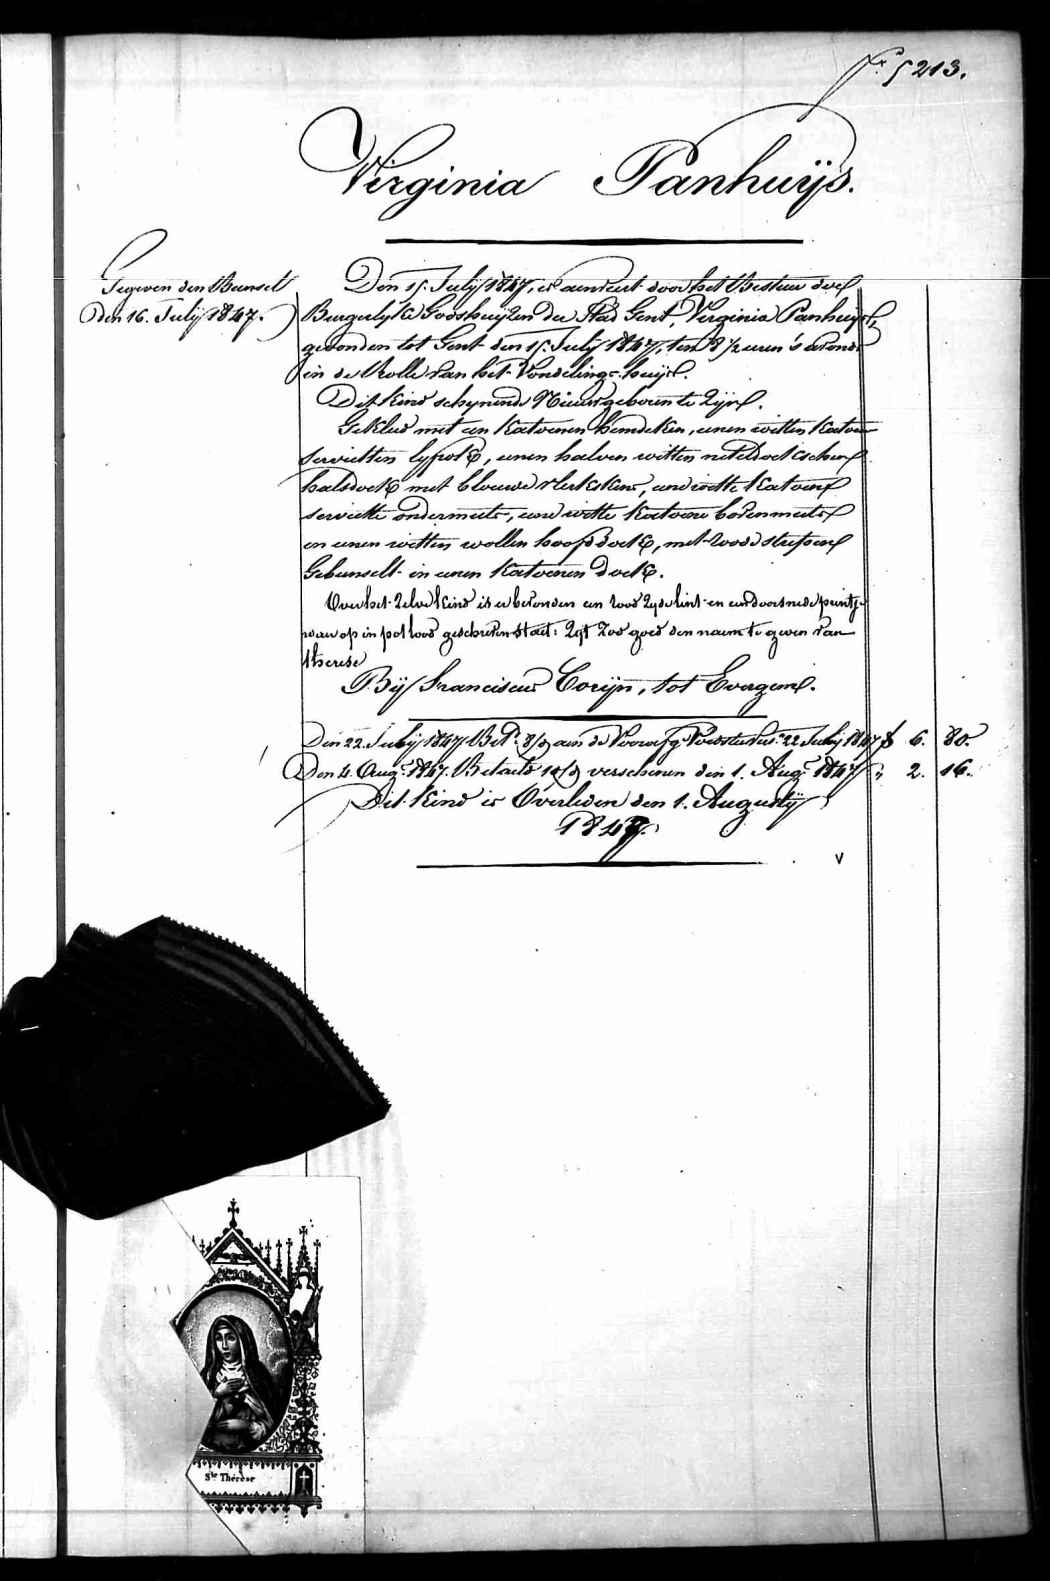 N.º 5213.
Virginia Panhuÿs.
Gegeven den Bunsel
Den 16. Julÿ 1847.
Den 15. Julÿ 1847, is aenveert door het Bestuer der
Burgerlÿke Godshuÿzen der Stad Gent, Virginia Panhuÿs,
gevonden tot Gent den 15. Julÿ 1847, ten 8 1/2 uren 's avonds
in de Rolle van het Vondeling-huÿs.
Dit kind schynende Nieuwgeboren te Zyn.
Gekleed met een Katoenen hemdeken, eenen witten Katoen
servietten lyfrok, eenen halven witten neteldoekschen
halsdoek met blouwe vlekskens, eene witte Katoene
serviette ondermuts, eene witte Katoene bovenmuts
en eenen witten wollen hoofddoek, met roode strepen
Gebunselt in eenen Katoenen doek.
Over het zelve kind is er bevonden een rood zyde lint en een doorsnede printje
waer op in potlood geschreven staet: Zyt zoo goed den naem te geven van
therese
Bÿ Franciscus Corÿn, tot Evergem.
Den 22. Julÿ 1847 Bet. 8/d aen de Voorafg. Voedster 22 Julÿ 1847 f 6. 80.
Den 4. Aug. 1847. Betaeld 10/d verschenen den 1. Aug. 1847 " 2. 16.
Dit kind is Overleden den 1. Augustÿ
1847.
v
Ste Thérèse